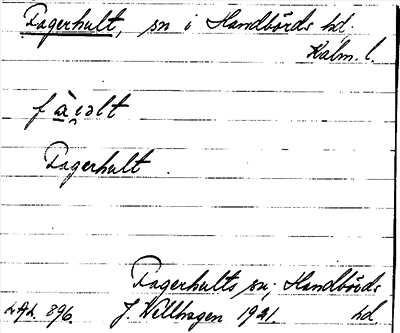 Fagerhult, sn i Handbörds hd
Kalm. l.
Fagerhult
Fagerhults sn; Handbörds
hd
LAL 896. J. Willhagen 1921.